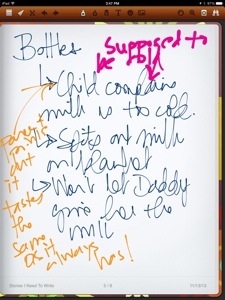 iPad 3:47 PM
Bottles
Supposed to
Child complains
milk is too cold.
Spits out milk
on Blanket
Won't let Daddy
give her the
milk
Parent
points
out
it
tastes
the
same
as it
always
has!
Stories I Need To Write 11/12/13